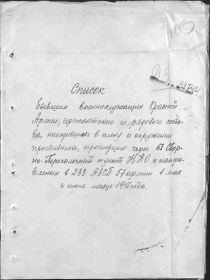 Список
бывших военнослужащих Красной
Армии, сержантского и рядового соста-
ва, находившихся в плену и окружении
противника, прошедших через 61 Сбор-
но-Пересыльный пункт НКО и направ-
ленных в 233 АЗСП 57 армии в мае
и июне месяце 1945 года.